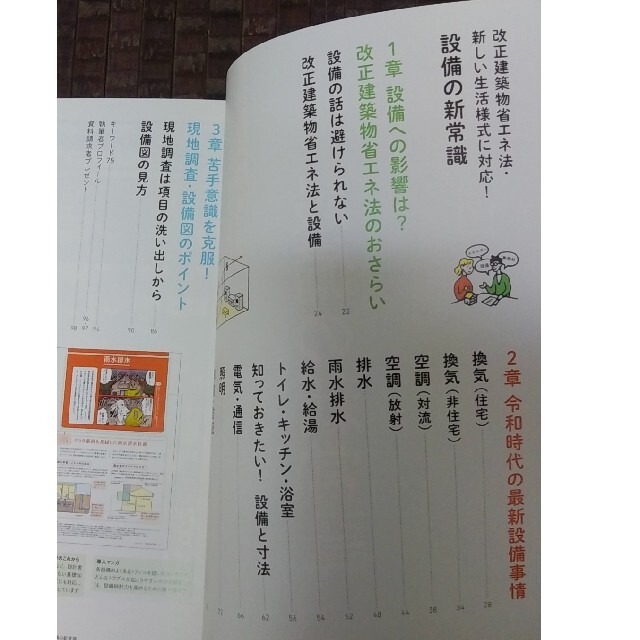 改正建築物省エネ法・
新しい生活様式に対応！
設備の新常識
1章 設備への影響は？
改正建築物省エネ法のおさらい
設備の話は避けられない 22
改正建築物省エネ法と設備 24
2章 令和時代の最新設備事情
換気（住宅） 28
換気（非住宅） 34
空調（対流） 38
空調（放射） 44
排水 48
雨水排水 52
給水・給湯 54
トイレ・キッチン・浴室 56
知っておきたい！ 設備と寸法 62
電気・通信 66
照明 72
3章 苦手意識を克服！
現地調査・設備図のポイント
現地調査は項目の洗い出しから 86
設備図の見方 90
キーワード75 94
執筆者プロフィール 96
資料請求者プレゼント 98
雨水排水
職人マンガ